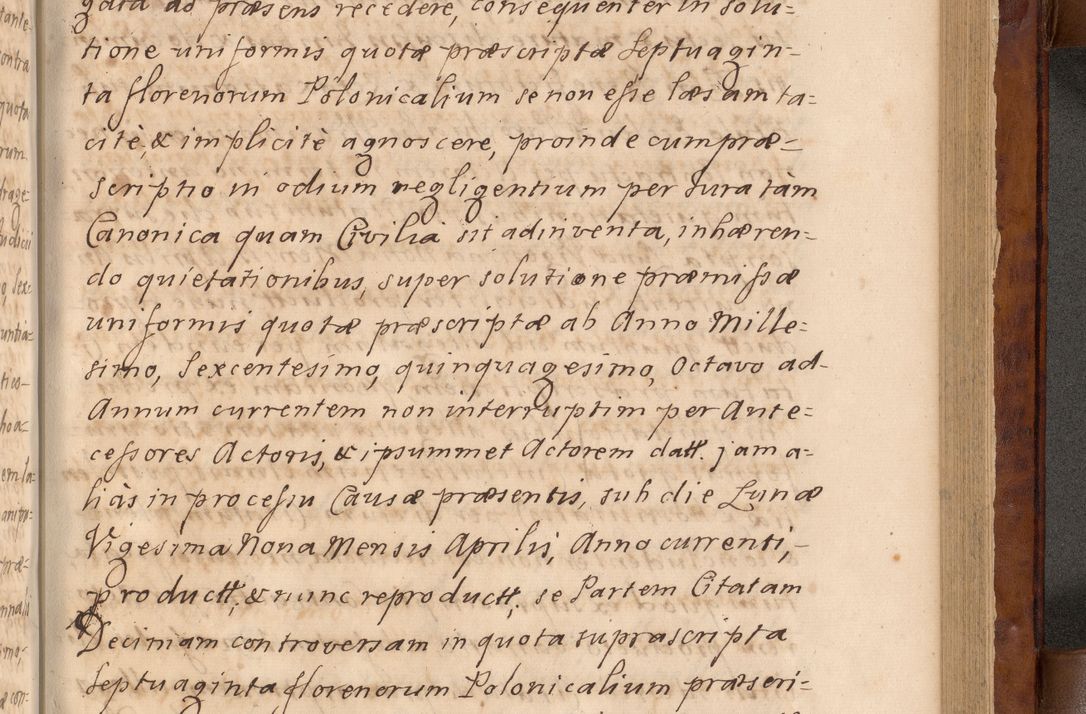 gata ad præsens recedere, consequenter in solu=
tione uniformis quotæ præscriptæ Septuagin=
ta florenorum Polonicalium se non esse læsam ta=
citè, & implicitè agnoscere, proinde cum præ=
scriptio in odium negligentium per Jura tàm
Canonica quam Civilia sit adinventa, inhæren=
do quietationibus, super solutione præmissæ
uniformis quotæ præscriptæ ab Anno Mille=
simo, Sexcentesimo, quinquagesimo, Octavo ad-
Annum currentem non interruptim per Ante=
cessores Actoris, & ipsummet Actorem datt. jam a=
liàs in processu Causæ præsentis, sub die Lunæ
Vigesima Nona Mensis Aprilis, Anno currenti,-
productt, & nunc reproductt, se Partem Citatam
Decimam controversam in quota suprascripta
Septuaginta, florenorum Polonicalium præscri=